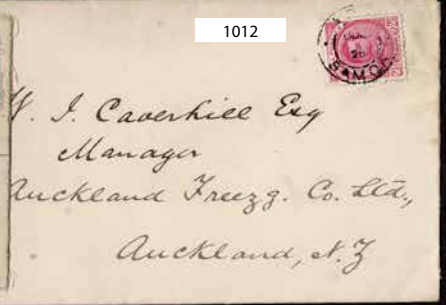 1012
SAMOA
W. J. Caverhill Esq
Manager
Auckland Freezg. Co. Ltd.,
Auckland, N. Z